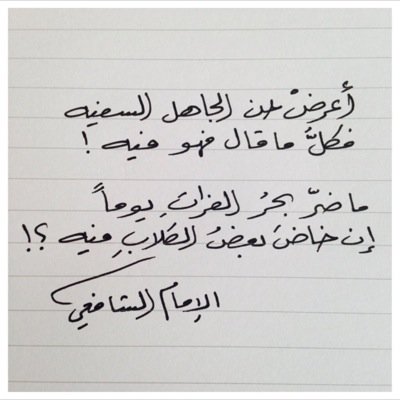 أعرضْ عن الجاهل السفيه
فكلُّ ما قال فهو فيه !
ما ضرّ بحرُ الفراتِ يوماً
إن خاضَ بعضُ الكلابِ فيه ؟!
الإمام الشافعي